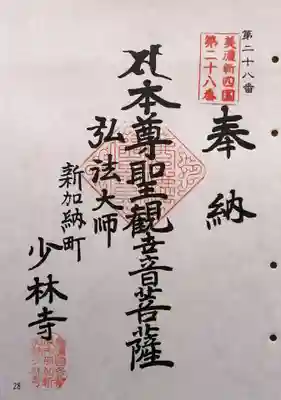 第二十八番
美濃新四国
第二十八番
奉納
本尊聖観音菩薩
弘法大師
新加納町
少林寺
28